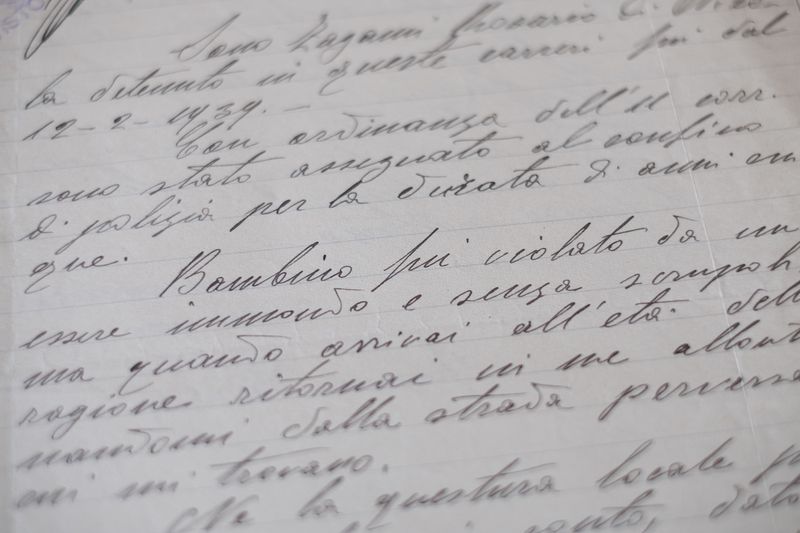 Sono Zagami Rosario di Nico-
la detenuto in queste carceri fin dal
12-2-1939.-
Con ordinanza dell'11 corr.
sono stato assegnato al confino
di polizia per la durata di anni cin
que.
Bambino fui violato da un
essere immondo e senza scrupoli
ma quando arrivai all'età dell
ragione ritornai in me allont
nandomi dalla strada perversa
cui mi trovavo.
Ne la questura locale p
santo, dato